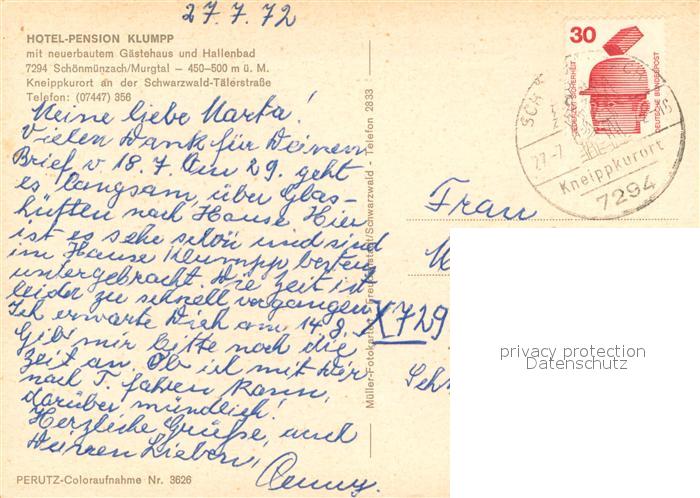 27.7.72
HOTEL-PENSION KLUMPP
mit neuerbautem Gästehaus und Hallenbad
7294 Schönmünzach/Murgtal — 450-500 m ü. M.
Kneippkurort an der Schwarzwald-Tälerstraße
Telefon: (07447) 356
Meine liebe Marta!
Vielen Dank für Deinen
Brief v 18.7. Am 29. geht
es langsam über Glas-
hütten nach Hause. Hier
ist es sehr schön und sind
im Hause Klumpp bestens
untergebracht. Die Zeit ist
leider zu schnell vergangen
Ich erwarte Dich am 14.8.
Gib mir bitte noch die
Zeit an. Ob ich mit Dir
nach T. fahren kann,
darüber mündlich!
Herzliche Grüße, auch
Deinen Lieben,
PERUTZ-Coloraufnahme Nr. 3626
Müller-Fotokarten Freudenstadt/Schwarzwald - Telefon 2833
30
JEDERZEIT SICHERHEIT
DEUTSCHE BUNDESPOST
SCH
27.-7
Kneippkurort
7294
Frau
X729
Sch
privacy protection
Datenschutz